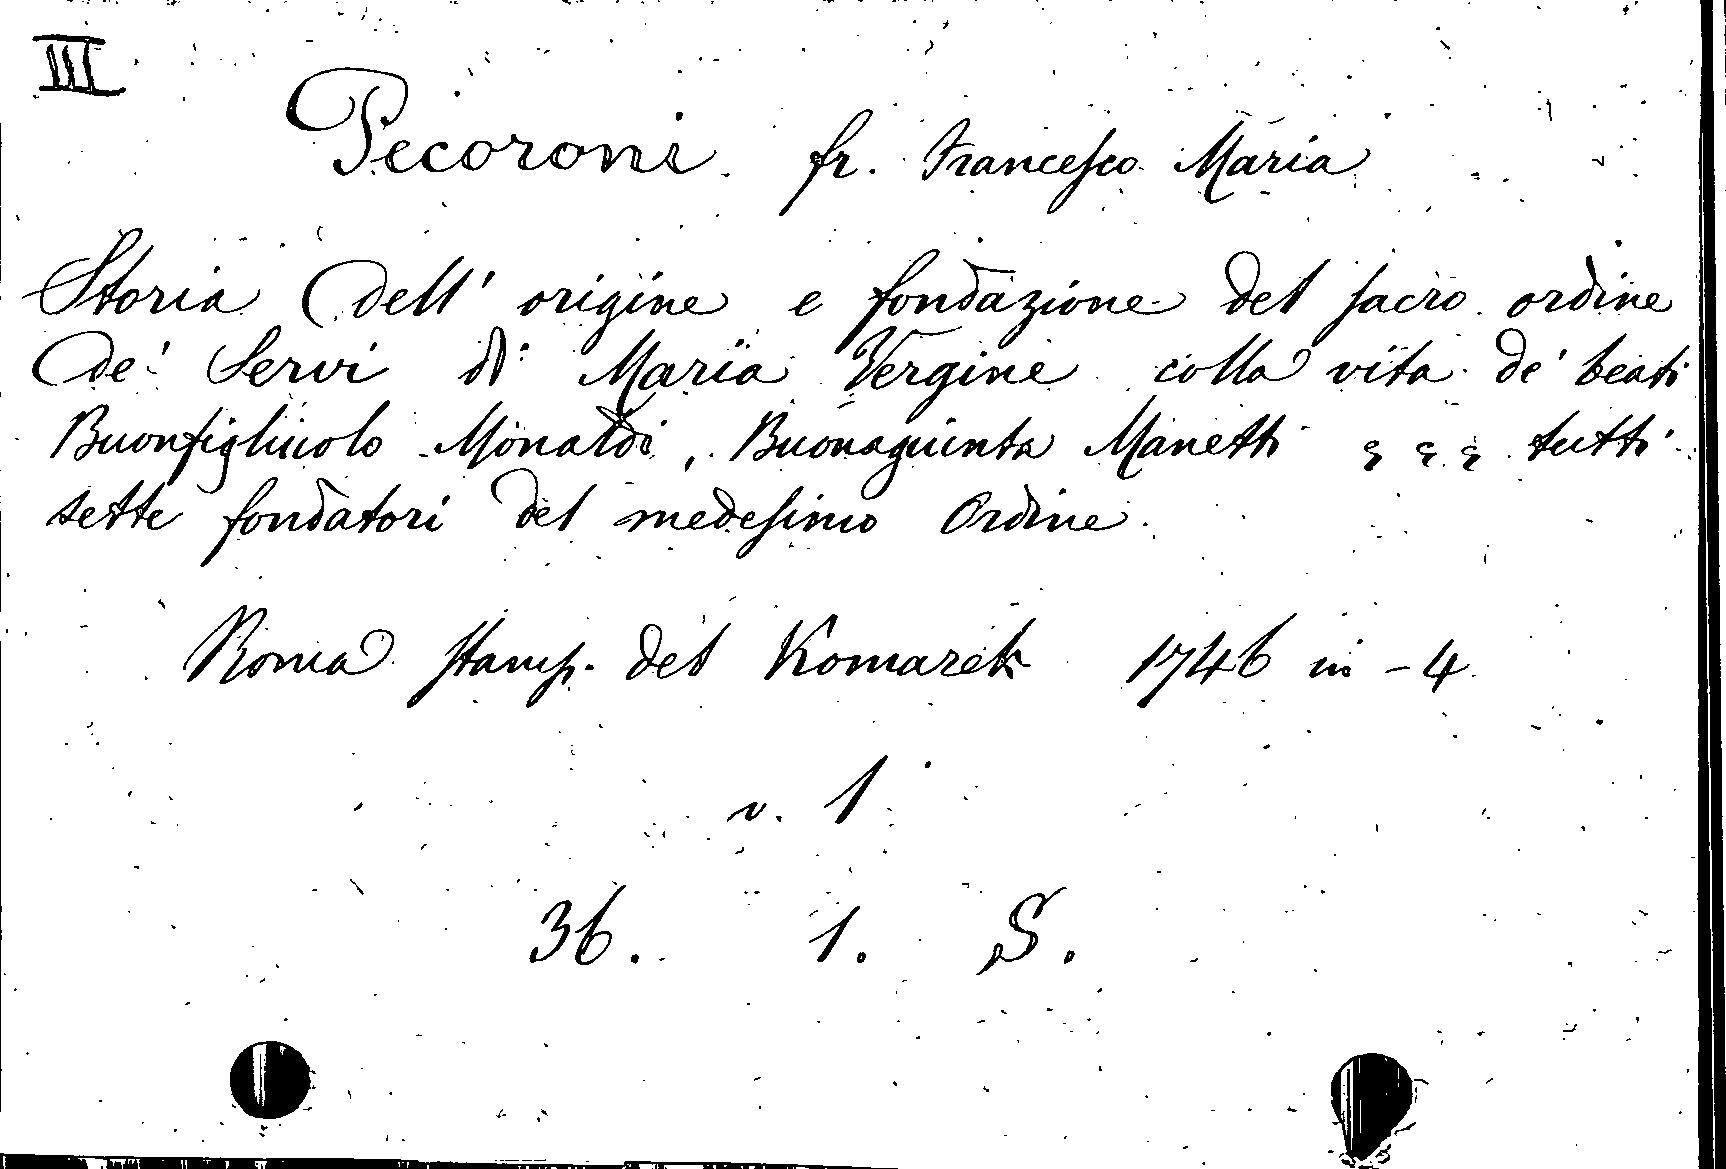 III
Pecoroni fr. Francesco Maria
Storia dell' origine e fondazione del sacro ordine
de' Servi di Maria Vergine colla vita de' beati
Buonfigliuolo Monaldi, Buonagiunta Manetti & & & tutti
sette fondatori del medesimo Ordine.
Roma stamp. del Komarek 1746 in-4
v. 1
36. 1. S.